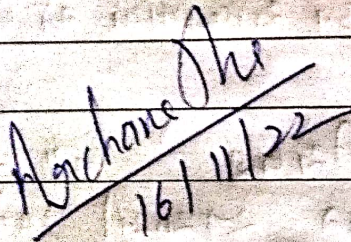 Archana
16/11/22